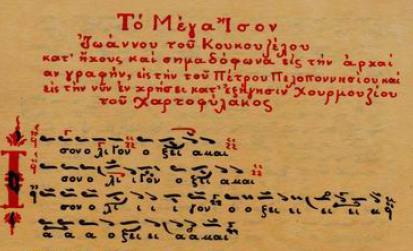 Τό Μέγα Ἴσον
Ἰωάννου τοῦ Κουκουζέλου
κατ' ἤχους καί σημαδόφωνα εἰς τήν ἀρχαί
αν γραφήν, εἰς τήν τοῦ Πέτρου Πελοποννησίου καί
εἰς τήν νῦν ἐν χρήσει κατ' ἐξήγησιν Χουρμουζίου
τοῦ Χαρτοφύλακος
σον ο λι γον ο ξει α και
σον ο λι ι γον ο ξει α και
σον ο λι ι ι γον ο ο ξει ει ει ει ει
α α α ο ξει α α και